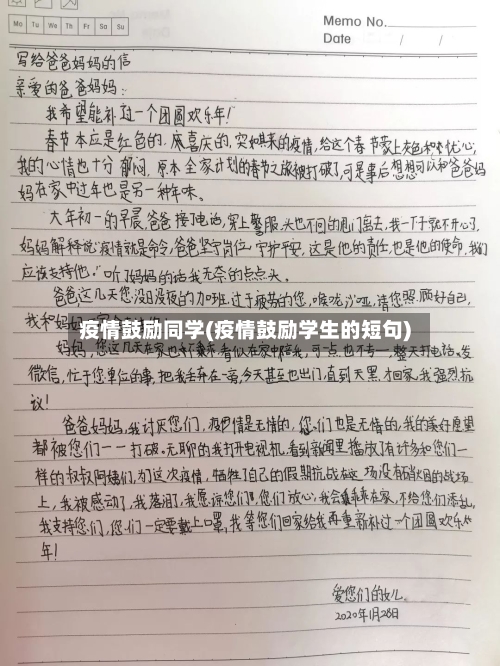 Mo Tu We Th Fr Sa Su
Memo No.
Date / /
写给爸爸妈妈的信
亲爱的爸爸妈妈：
我希望能补过一个团圆欢乐年！
春节本应是红色的、喜庆的，突如其来的疫情，给这个春节蒙上灰色和忧心，
我的心情也十分郁闷，原本全家计划的春节之旅被打破了，可是事后想想可以和爸爸妈
妈在家中过年也是另一种年味。
大年初一的早晨，爸爸接了电话，穿上警服，头也不回的甩门离去，我一下子就不开心了，
妈妈解释说：疫情就是命令，爸爸坚守岗位，守护平安，这是他的责任，也是他的使命，我们
应该支持他。"听了妈妈的话我无奈的点点头。
爸爸，这几天您没日没夜的加班，过于疲劳的您，喉咙沙哑，请您照顾好自己，
我和妈妈
疫情鼓励同学(疫情鼓励学生的短句)
妈妈，您这几天在家也，看似在家中陪我，可一点也不专一，整天打电话、发
微信，忙于您单位的事，把我丢弃在一旁，今天甚至也出门，直到天黑才回家，我强烈抗
议！
爸爸妈妈，我讨厌您们，疫情是无情的，您们也是无情的，我的美好愿望
都被您们一一打破。无聊的我打开电视机，看到新闻里播放了有许多和您们一
样的叔叔阿姨们，为了这次疫情，牺牲了自己的假期抗战在这场没有硝烟的战场
上，我被感动了，我落泪了，我愿谅您们！您们放心，我会乖乖在家，不给您们添乱，
我支持您们，您们一定要戴上口罩，我等您们回家给我再重新补过一个团圆欢乐
年！
爱您们的女儿
2020年1月28日